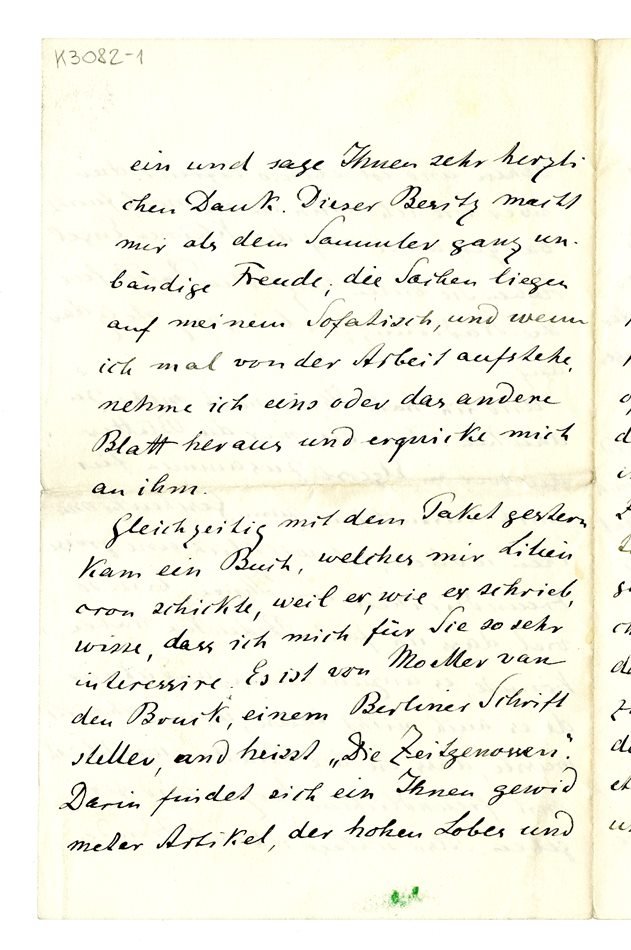 K3082-1
ein und sage Ihnen sehr herzli
chen Dank. Dieser Besitz macht
mir als dem Sammler ganz un-
bändige Freude, die Sachen liegen
auf meinem Sofatisch, und wenn
ich mal von der Arbeit aufstehe,
nehme ich eins oder das andere
Blatt heraus und erquicke mich
an ihm.
Gleichzeitig mit dem Paket gestern
kam ein Buch, welches mir Lilien
cron schickte, weil er, wie er schrieb,
wisse, dass ich mich für Sie so sehr
interessire. Es ist von Moeller van
den Bruck, einem Berliner Schrift
steller, und heisst „Die Zeitgenossen".
Darin findet sich ein Ihnen gewid
meter Artikel, der hohen Lobes und